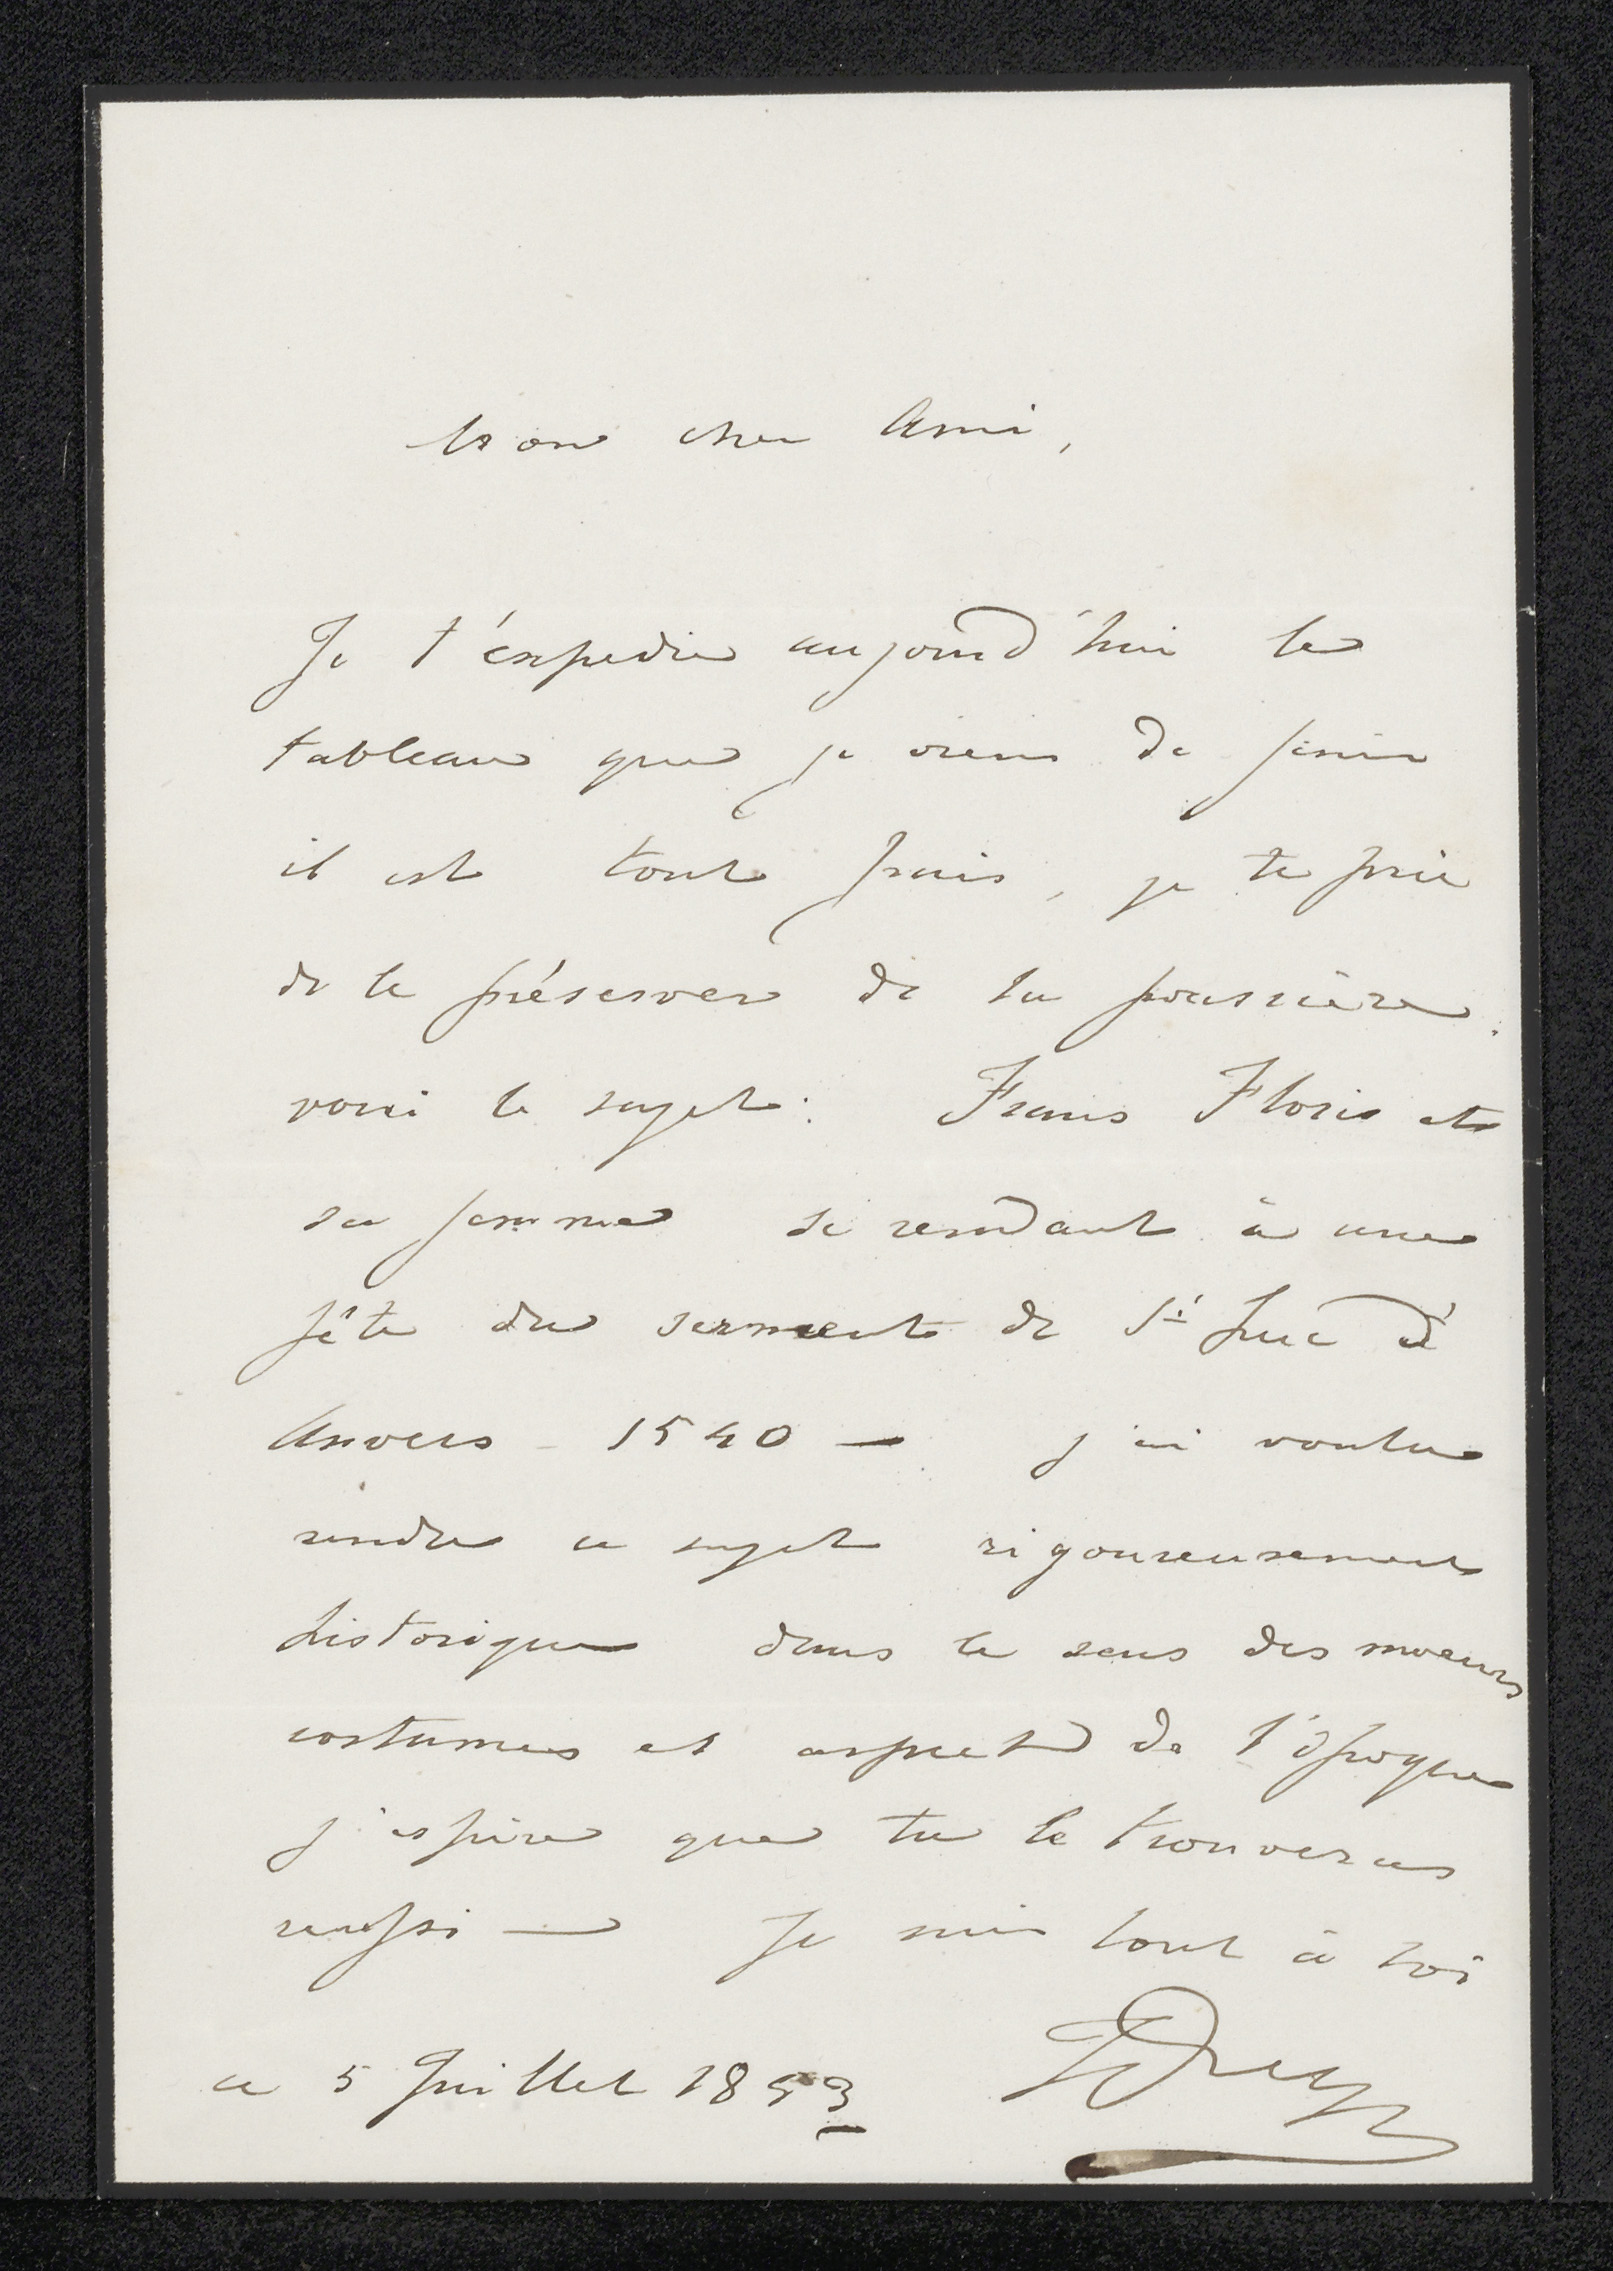 Mon cher Ami,
Je t'éxpedie aujourd'hui le
tableau que je viens de finir
il est tout frais, je te prie
de le préserver de la poussière.
voici le sujet: Frans Floris et
sa femme se rendant à une
fête du serment de St Luc d'
Anvers - 1540 — j'ai voulu
rendre ce sujet rigoureusement
historique dans le sens des moeurs
costumes et aspect de l'époque
j'espère que tu le trouveras
reussi — Je suis tout à toi
ce 5 Juillet 1853